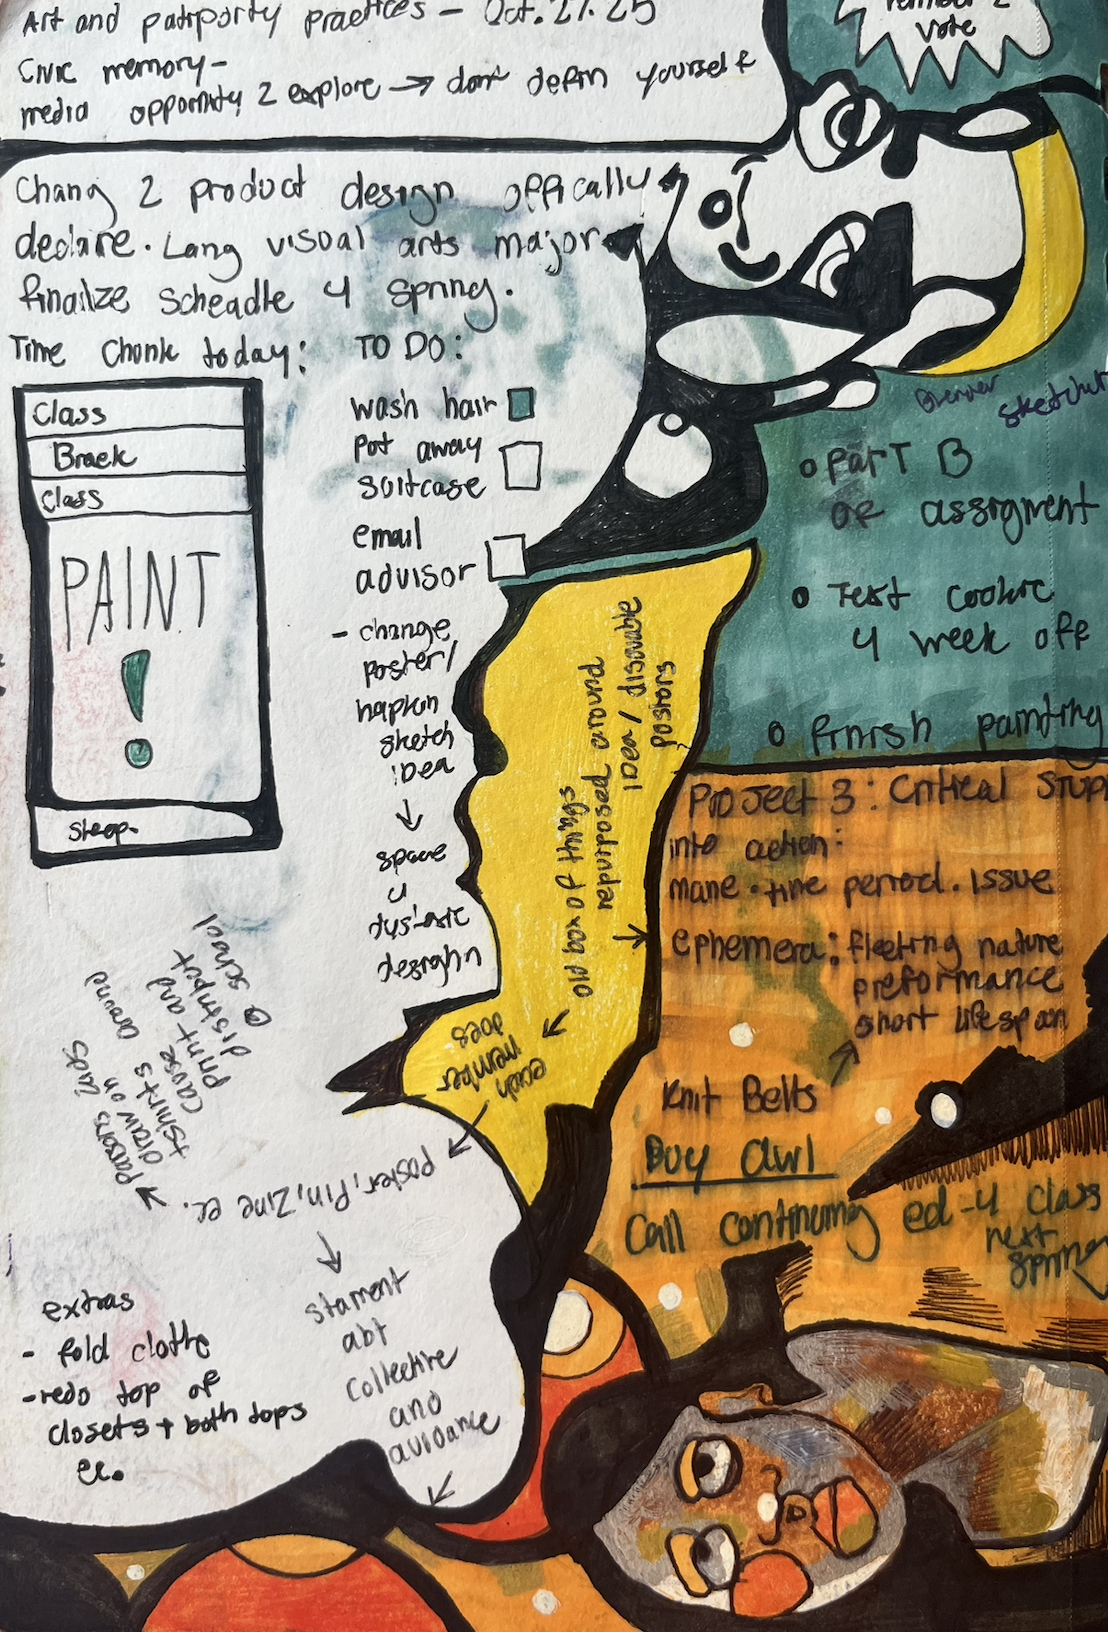 Art and patrporty practices - Oct. 27. 25
Civic memory-
media opportnity 2 explore → don't defin yourself
remmber 2
vote
Chang 2 product design offically
declare. Lang visual arts major
finailze scheadle 4 spring.
Time Chonk today:
Class
Braek
Class
PAINT
!
sleep-
TO DO:
wash hair
pot away
suitcase
email
advisor
- change
poster/
napkin
sketch
idea
↓
space
4
dyslexic
desighn
sketch
o PArT B
of assigment
o Text cookie
4 week off
o finish painting
old box of things
repurposed around
idea / disposable
posters
each
member
does
poster, Pin, Zine ec.
stament
abt
collective
and
avoidance
Parsons kids
draw on
tshirts around
cause
print and
distribut
@ school
extras
- fold cloths
- redo top of
closets + both tops
ec.
Project 3: Critical
into action:
mane . time period . Issue
Ephemera: fleeting nature
preformance
short lifespan
Knit Belts
Buy awl
Call continuing ed - 4 class
next
spring